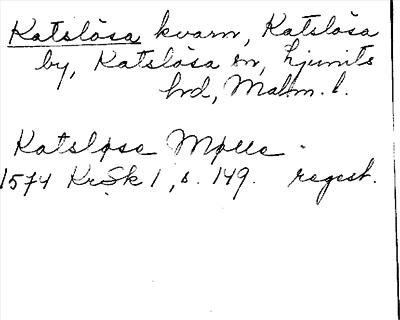 Katslösa kvarn, Katslösa
by, Katslösa sn, Ljunits
hd, Malm. l.
Katsløsse Mølle.
1574 KrSk 1, s. 149. regest.